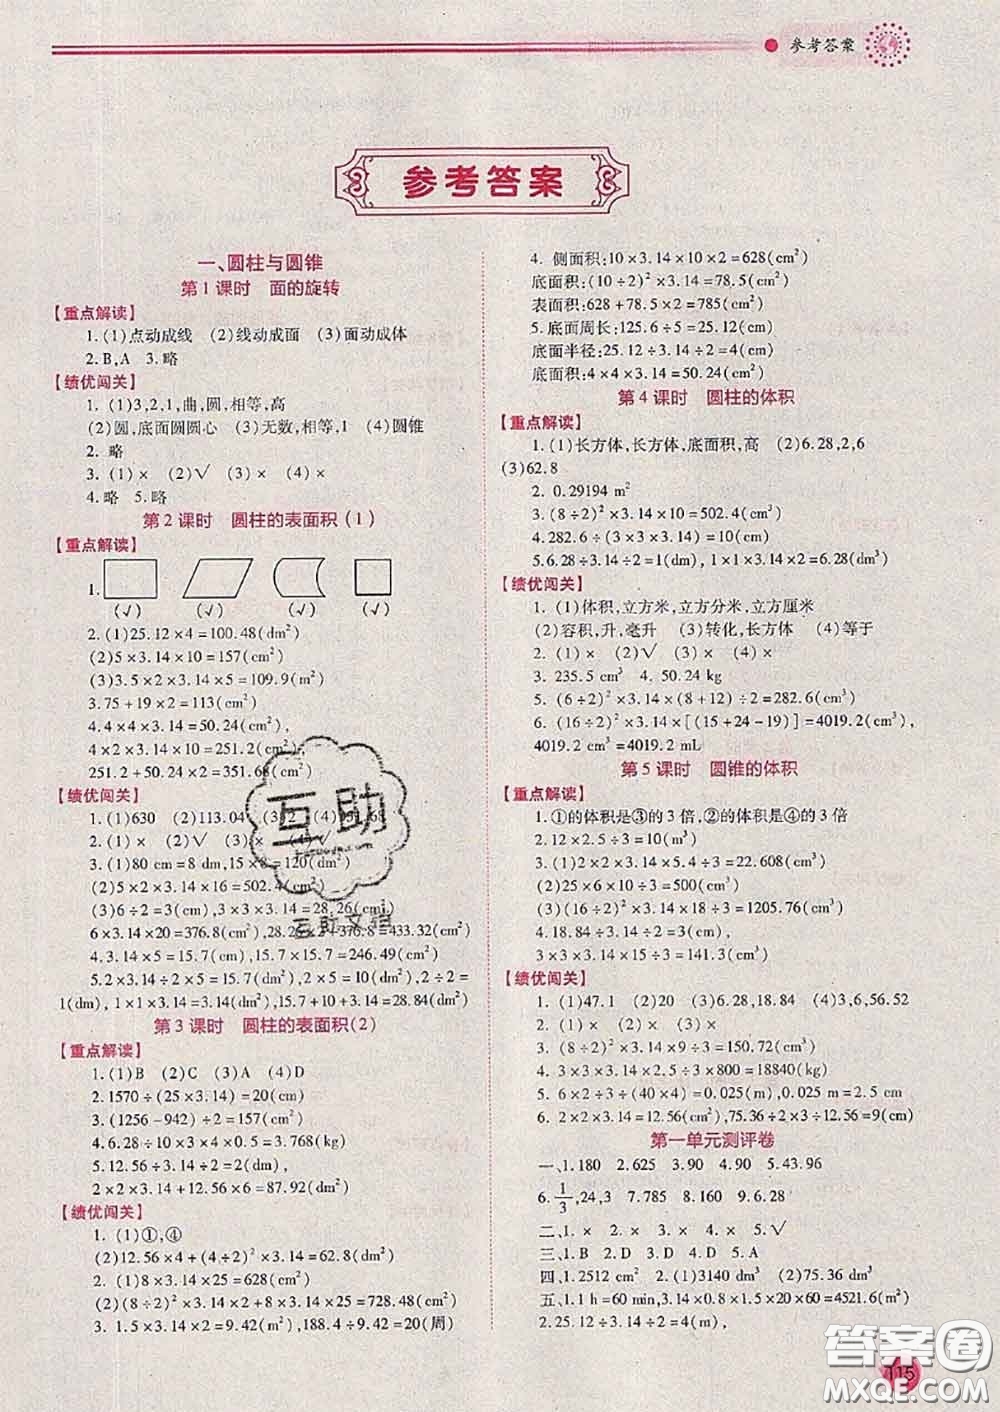 参考答案
参考答案
一、圆柱与圆锥
第1课时　面的旋转
【重点解读】
1.(1)点动成线　(2)线动成面　(3)面动成体
2.B,A　3.略
【绩优闯关】
1.(1)3,2,1,曲,圆,相等,高
(2)圆,底面圆圆心　(3)无数,相等,1　(4)圆锥
2.略
3.(1)×　(2)√　(3)×　(4)×
4.略　5.略
第2课时　圆柱的表面积(1)
【重点解读】
1.
(√)　(√)　(√)　(√)
2.(1)25.12×4=100.48(dm²)
(2)5×3.14×10=157(cm²)
(3)3.5×2×3.14×5=109.9(m²)
3.75+19×2=113(cm²)
4.4×4×3.14=50.24(cm²),
4×2×3.14×10=251.2(cm²),
251.2+50.24×2=351.68(cm²)
【绩优闯关】
1.(1)630　(2)113.04　(3)2　(4)91.68
2.(1)×　(2)√　(3)×　(4)×
3.(1)80 cm=8 dm,15×8=120(dm²)
(2)5×2×3.14×16=502.4(cm²)
(3)6÷2=3(cm),3×3×3.14=28.26(cm²),
6×3.14×20=376.8(cm²),28.26×2+376.8=433.32(cm²)
4.3.14×5=15.7(cm),15.7×15.7=246.49(cm²)
5.2×3.14÷2×5=15.7(dm²),2×5=10(dm²),2÷2=
1(dm),1×1×3.14=3.14(dm²),15.7+10+3.14=28.84(m²)
第3课时　圆柱的表面积(2)
【重点解读】
1.(1)B　(2)C　(3)A　(4)D
2.1570÷(25×3.14)=20(cm)
3.(1256-942)÷2=157(cm²)
4.6.28÷10×3×4×0.5=3.768(kg)
5.12.56÷3.14÷2=2(dm),
2×2×3.14+12.56×6=87.92(dm²)
【绩优闯关】
1.(1)①,④
(2)12.56×4+(4÷2)²×3.14=62.8(dm²)
2.(1)8×3.14×25=628(cm²)
(2)(8÷2)²×3.14×2+8×3.14×25=728.48(cm²)
3.1.5×3.14×2=9.42(m),188.4÷9.42=20(周)
4.侧面积:10×3.14×10×2=628(cm²)
底面积:(10÷2)²×3.14=78.5(cm²)
表面积:628+78.5×2=785(cm²)
5.底面周长:125.6÷5=25.12(cm)
底面半径:25.12÷3.14÷2=4(cm)
底面积:4×4×3.14=50.24(cm²)
第4课时　圆柱的体积
【重点解读】
1.(1)长方体,长方体,底面积,高　(2)6.28,2,6
(3)62.8
2.0.29194 m²
3.(8÷2)²×3.14×10=502.4(cm³)
4.282.6÷(3×3×3.14)=10(cm)
5.6.28÷3.14÷2=1(dm),1×1×3.14×2=6.28(dm³)
【绩优闯关】
1.(1)体积,立方米,立方分米,立方厘米
(2)容积,升,毫升　(3)转化,长方体　(4)等于
2.(1)×　(2)√　(3)×　(4)×
3.235.5 cm³　4.50.24 kg
5.(6÷2)²×3.14×(8+12)÷2=282.6(cm³)
6.(16÷2)²×3.14×[(15+24-19)]=4019.2(cm³),
4019.2 cm³=4019.2 mL
第5课时　圆锥的体积
【重点解读】
1.①的体积是③的3倍,②的体积是④的3倍
2.12×2.5÷3=10(m³)
3.(1)2×2×3.14×5.4÷3=22.608(cm³)
(2)125×12÷3=500(cm³)
(3)(16÷2)²×3.14×18÷3=1205.76(cm³)
4.18.84÷3.14÷2=3(cm),
3×3×3.14×15÷3=141.3(cm³)
【绩优闯关】
1.(1)47.1　(2)20　(3)6.28,18.84　(4)3,6,56.52
2.(1)×　(2)×　(3)×　(4)√
3.(8÷2)²×3.14×9÷3=150.72(cm³)
4.3×3×3.14×2.5÷3×800=18840(kg)
5.6×2÷3÷(40×4)=0.025(m),0.025 m=2.5 cm
6.2×2×3.14=12.56(cm²),75.36÷2×3÷12.56=9(cm)
第一单元测评卷
一、1.180　2.625　3.90　4.90　5.43.96
6.1/3,24,3　7.785　8.160　9.6.28
二、1.×　2.×　3.×　4.×　5.√
三、1.B　2.D　3.C　4.D　5.A
四、1.2512 cm²　2.(1)3140 dm³　(2)75.36 dm³
五、1.1 h=60 min,3.14×0.8×1.5×20×60=4521.6(m²)
2.25.12÷3.14÷2=4(m),
互助
互助文库
答案圈
MXQE.COM
115